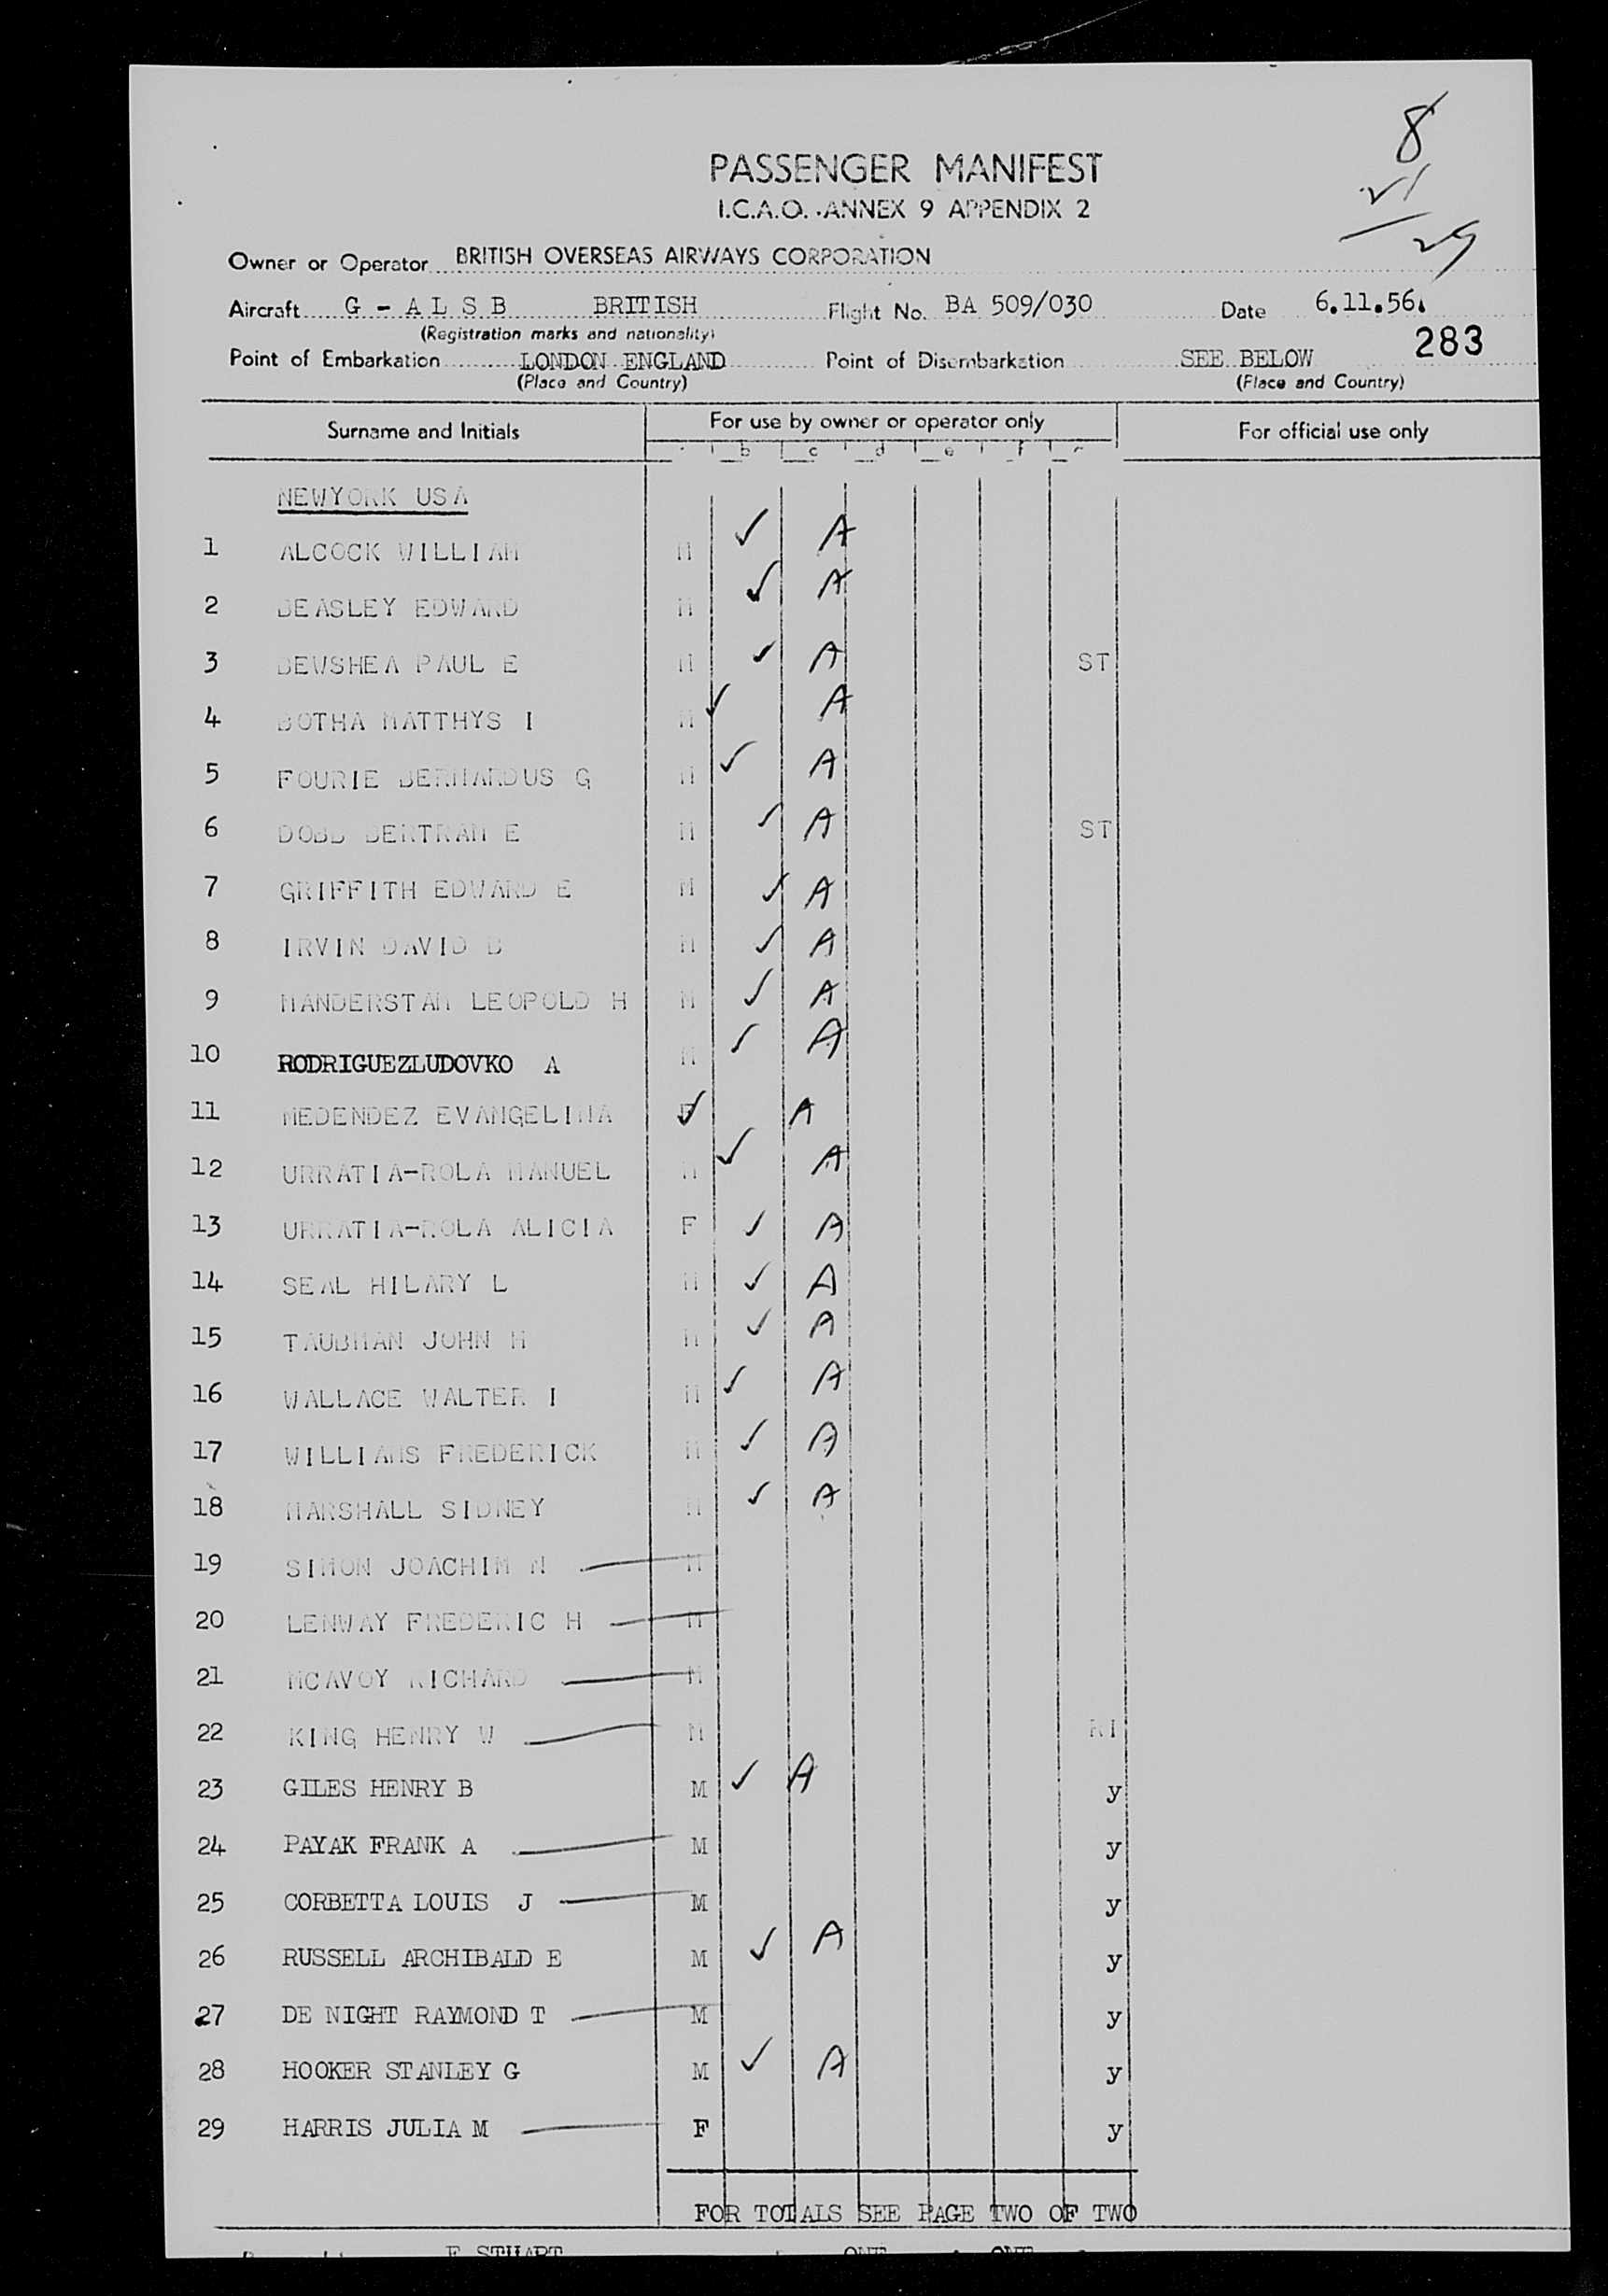 8
21
29
PASSENGER MANIFEST
I.C.A.O. ANNEX 9 APPENDIX 2
Owner or Operator BRITISH OVERSEAS AIRWAYS CORPORATION
Aircraft G - A L S B BRITISH Flight No. BA 509/030 Date 6.11.56.
(Registration marks and nationality)
283
Point of Embarkation LONDON ENGLAND Point of Disembarkation SEE BELOW
(Place and Country) (Place and Country)
Surname and Initials For use by owner or operator only For official use only
b c d e f
NEWYORK USA
1 ALCOCK WILLIAM M ✓ A
2 BEASLEY EDWARD M ✓ A
3 BEWSHEA PAUL E M ✓ A ST
4 BOTHA MATTHYS I M ✓ A
5 FOURIE BERNARDUS G M ✓ A
6 DOBB BERTRAM E M ✓ A ST
7 GRIFFITH EDWARD E M ✓ A
8 IRVIN DAVID B M ✓ A
9 MANDERSTAM LEOPOLD H M ✓ A
10 RODRIGUEZLUDOVKO A M ✓ A
11 MEDENDEZ EVANGELINA F ✓ A
12 URRATIA-ROLA MANUEL M ✓ A
13 URRATIA-ROLA ALICIA F ✓ A
14 SEAL HILARY L M ✓ A
15 TAUBMAN JOHN H M ✓ A
16 WALLACE WALTER I M ✓ A
17 WILLIAMS FREDERICK M ✓ A
18 MARSHALL SIDNEY M ✓ A
19 SIMON JOACHIM N M
20 LENWAY FREDERIC H M
21 MCAVOY RICHARD M
22 KING HENRY W M RI
23 GILES HENRY B M ✓ A y
24 PAYAK FRANK A M y
25 CORBETTA LOUIS J M y
26 RUSSELL ARCHIBALD E M ✓ A y
27 DE NIGHT RAYMOND T M y
28 HOOKER STANLEY G M ✓ A y
29 HARRIS JULIA M F y
FOR TOTALS SEE PAGE TWO OF TWO
E STUART ONE ONE